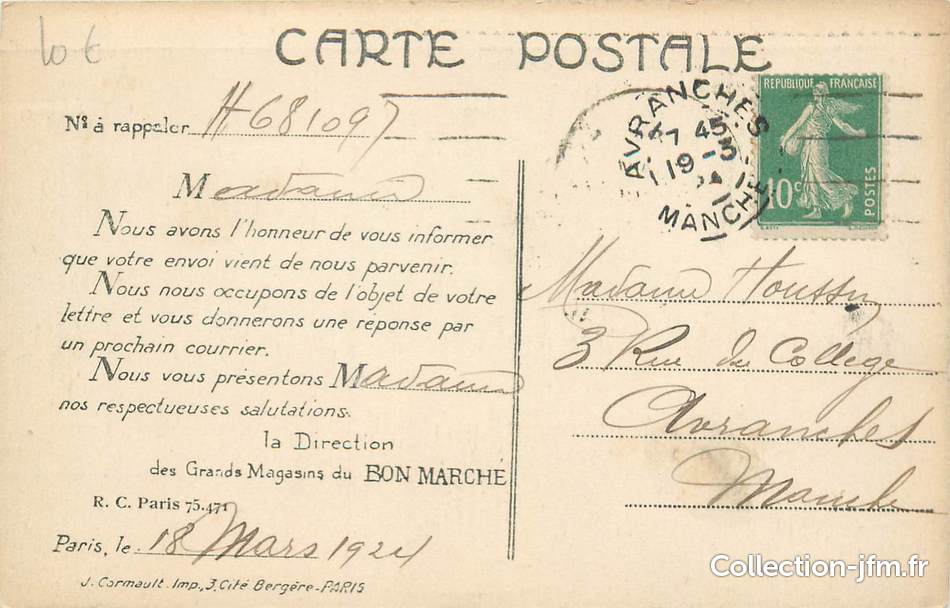 10 €
CARTE POSTALE
Nº à rappeler H681097
Madame
Nous avons l'honneur de vous informer
que votre envoi vient de nous parvenir.
Nous nous occupons de l'objet de votre
lettre et vous donnerons une réponse par
un prochain courrier.
Nous vous présentons Madame
nos respectueuses salutations.
la Direction
des Grands Magasins du BON MARCHÉ
R. C. Paris 75.471
Paris, le 18 Mars 1924
J. Cormault. Imp., 3, Cité Bergère-PARIS
AVRANCHES
17 45
19 - 3
MANCHE
REPUBLIQUE FRANÇAISE
10c
POSTES
Madame Houssin
3 Rue du College
Avranches
Manche
Collection-jfm.fr